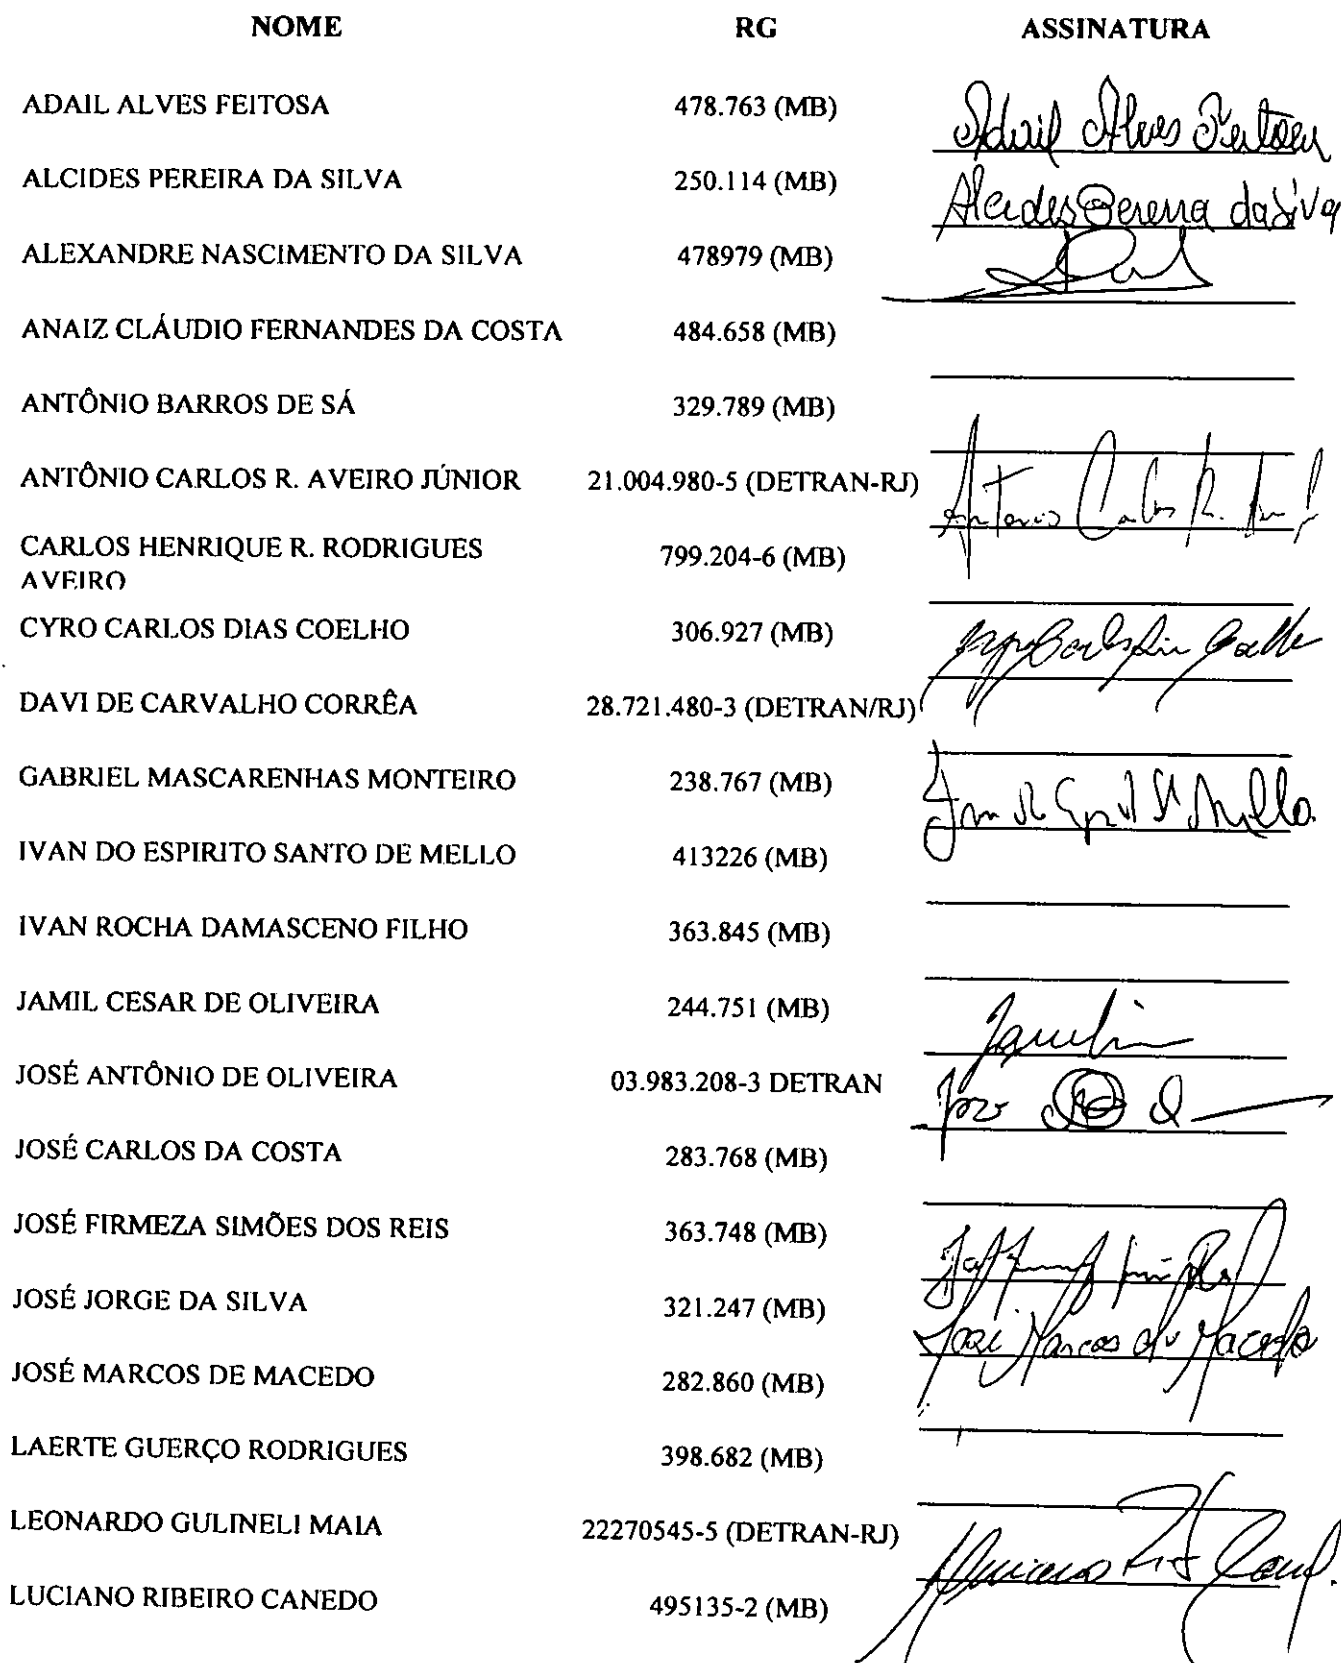 NOME RG ASSINATURA
ADAIL ALVES FEITOSA 478.763 (MB) Adail Alves Feitosa
ALCIDES PEREIRA DA SILVA 250.114 (MB) Alcides Pereira da Silva
ALEXANDRE NASCIMENTO DA SILVA 478979 (MB)
ANAIZ CLÁUDIO FERNANDES DA COSTA 484.658 (MB)
ANTÔNIO BARROS DE SÁ 329.789 (MB)
ANTÔNIO CARLOS R. AVEIRO JÚNIOR 21.004.980-5 (DETRAN-RJ) Antonio Carlos R.
CARLOS HENRIQUE R. RODRIGUES 799.204-6 (MB)
AVEIRO
CYRO CARLOS DIAS COELHO 306.927 (MB) Cyro Carlos Dias Coelho
DAVI DE CARVALHO CORRÊA 28.721.480-3 (DETRAN/RJ)
GABRIEL MASCARENHAS MONTEIRO 238.767 (MB)
IVAN DO ESPIRITO SANTO DE MELLO 413226 (MB) Mello
IVAN ROCHA DAMASCENO FILHO 363.845 (MB)
JAMIL CESAR DE OLIVEIRA 244.751 (MB)
JOSÉ ANTÔNIO DE OLIVEIRA 03.983.208-3 DETRAN
JOSÉ CARLOS DA COSTA 283.768 (MB)
JOSÉ FIRMEZA SIMÕES DOS REIS 363.748 (MB)
JOSÉ JORGE DA SILVA 321.247 (MB)
JOSÉ MARCOS DE MACEDO 282.860 (MB) José Marcos de Macedo
LAERTE GUERÇO RODRIGUES 398.682 (MB)
LEONARDO GULINELI MAIA 22270545-5 (DETRAN-RJ)
LUCIANO RIBEIRO CANEDO 495135-2 (MB)